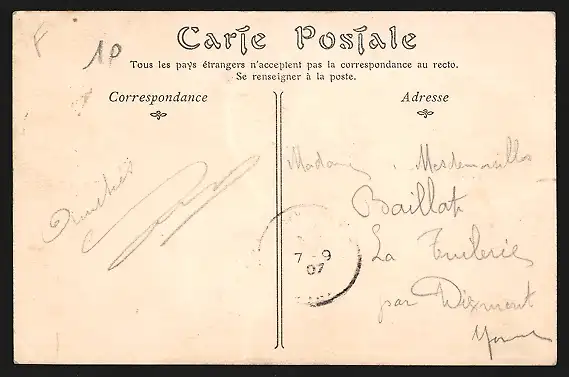 F
1P
Carte Postale
Tous les pays étrangers n'acceptent pas la correspondance au recto.
Se renseigner à la poste.
Correspondance
Amitiés
Adresse
Madame, Mesdemoiselles
Baillat
La Tuilerie
par Dixmont
Yonne
7-9
07